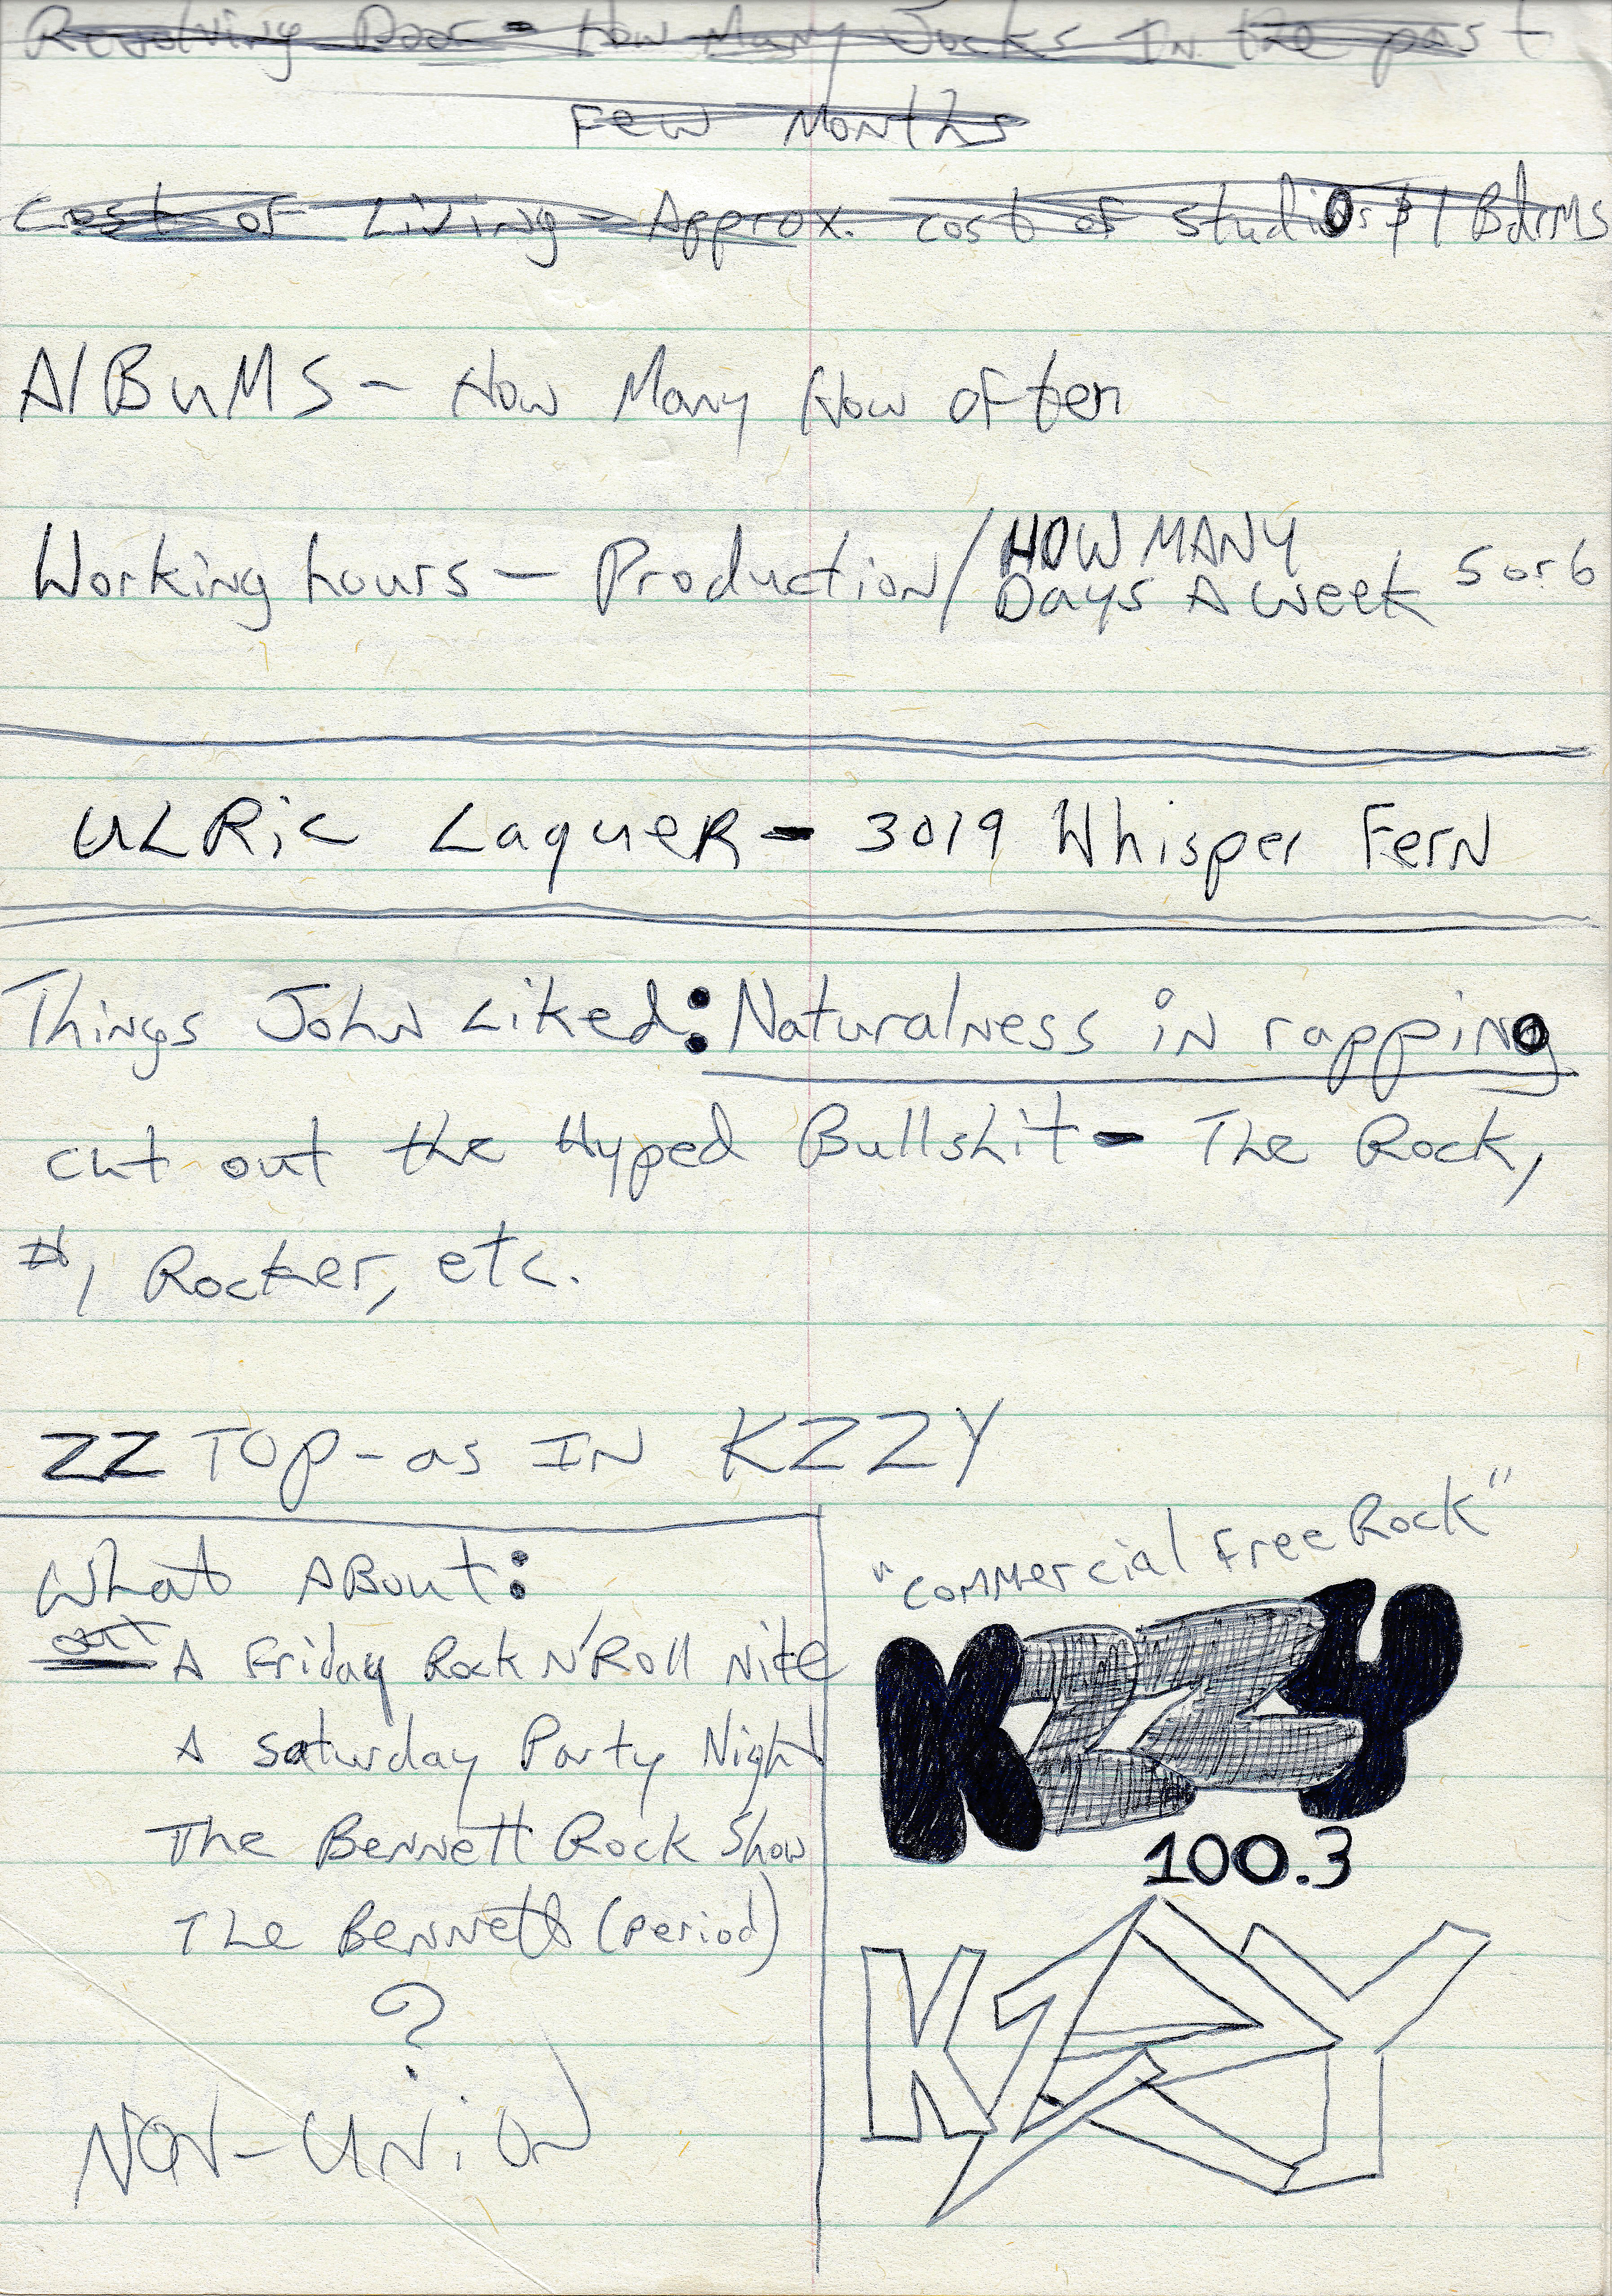 Revolving Door - How Many Jocks In the past
Few Months
Cost of Living - Approx. cost of studios & 1 Bdrms
AlBuMS - How Many How often
Working hours - Production / HOW MANY
Days A week 5 or 6
ULRic LaqueR - 3019 Whisper Fern
Things John Liked: Naturalness in rapping
cut out the Hyped Bullshit - The Rock,
#1 Rocker, etc.
ZZ TOP - as IN KZZY
What About:
out A Friday Rock N'Roll Nite
A saturday Party Night
The Bennett Rock Show
The Bennett (period)
?
NON-UNiON
"commercial free Rock"
KZZY
100.3
KZZY